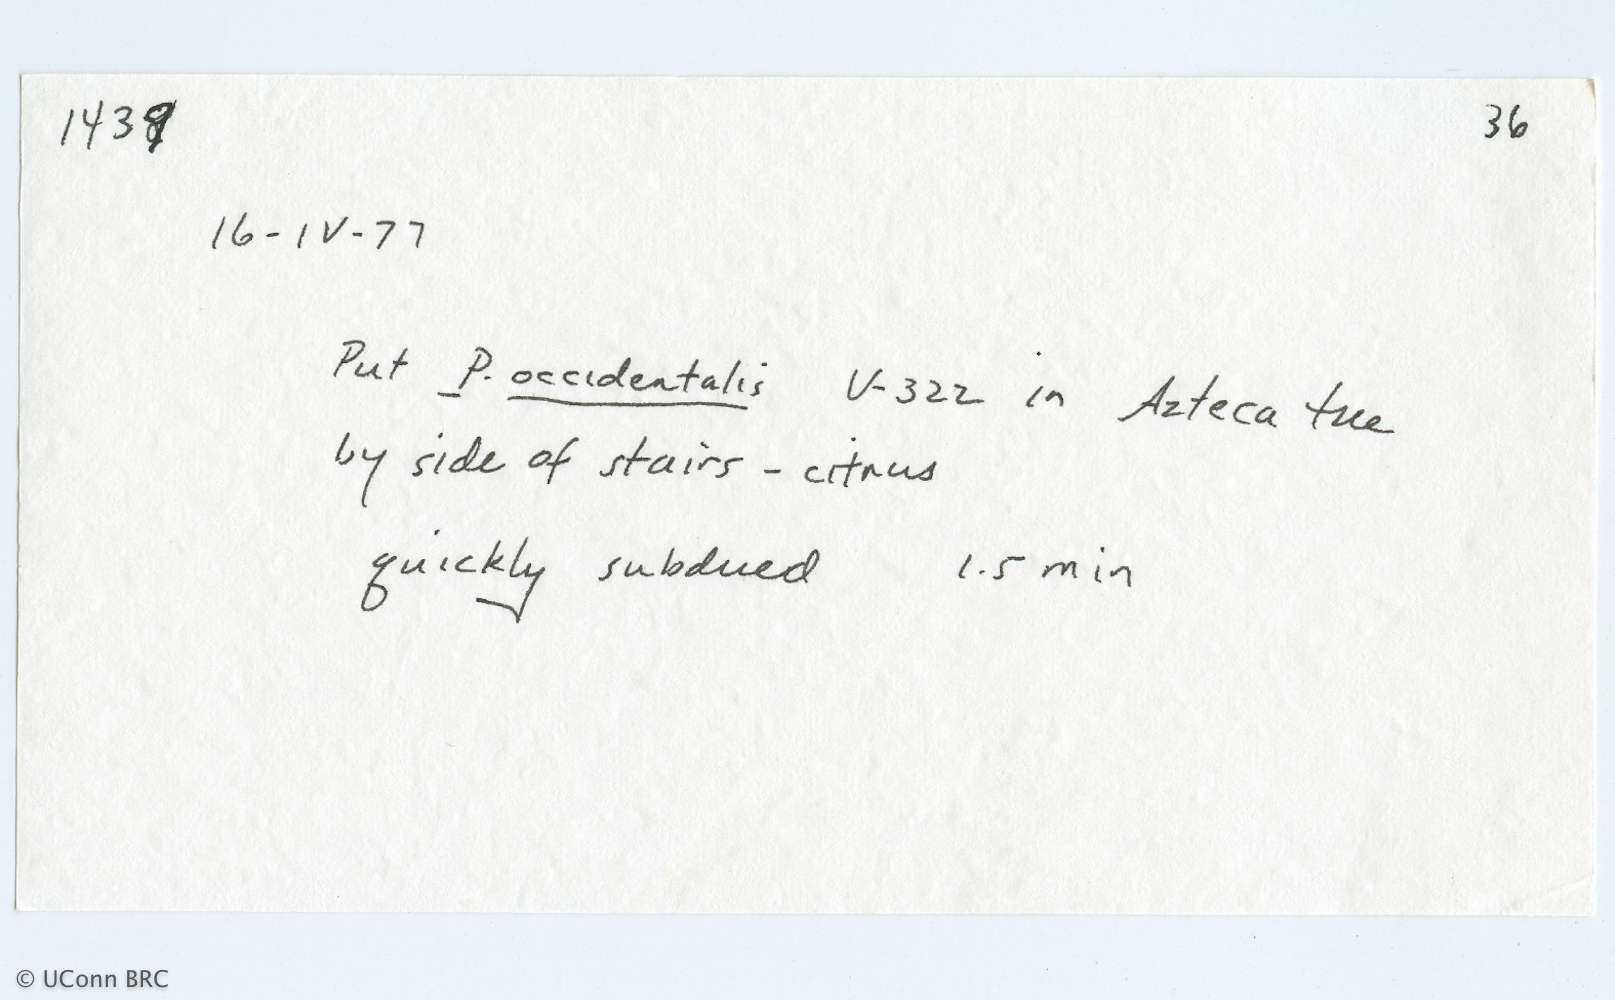 1439 36
16-IV-77
Put P. occidentalis V-322 in Azteca tree
by side of stairs - citrus
quickly subdued 1.5 min
© UConn BRC